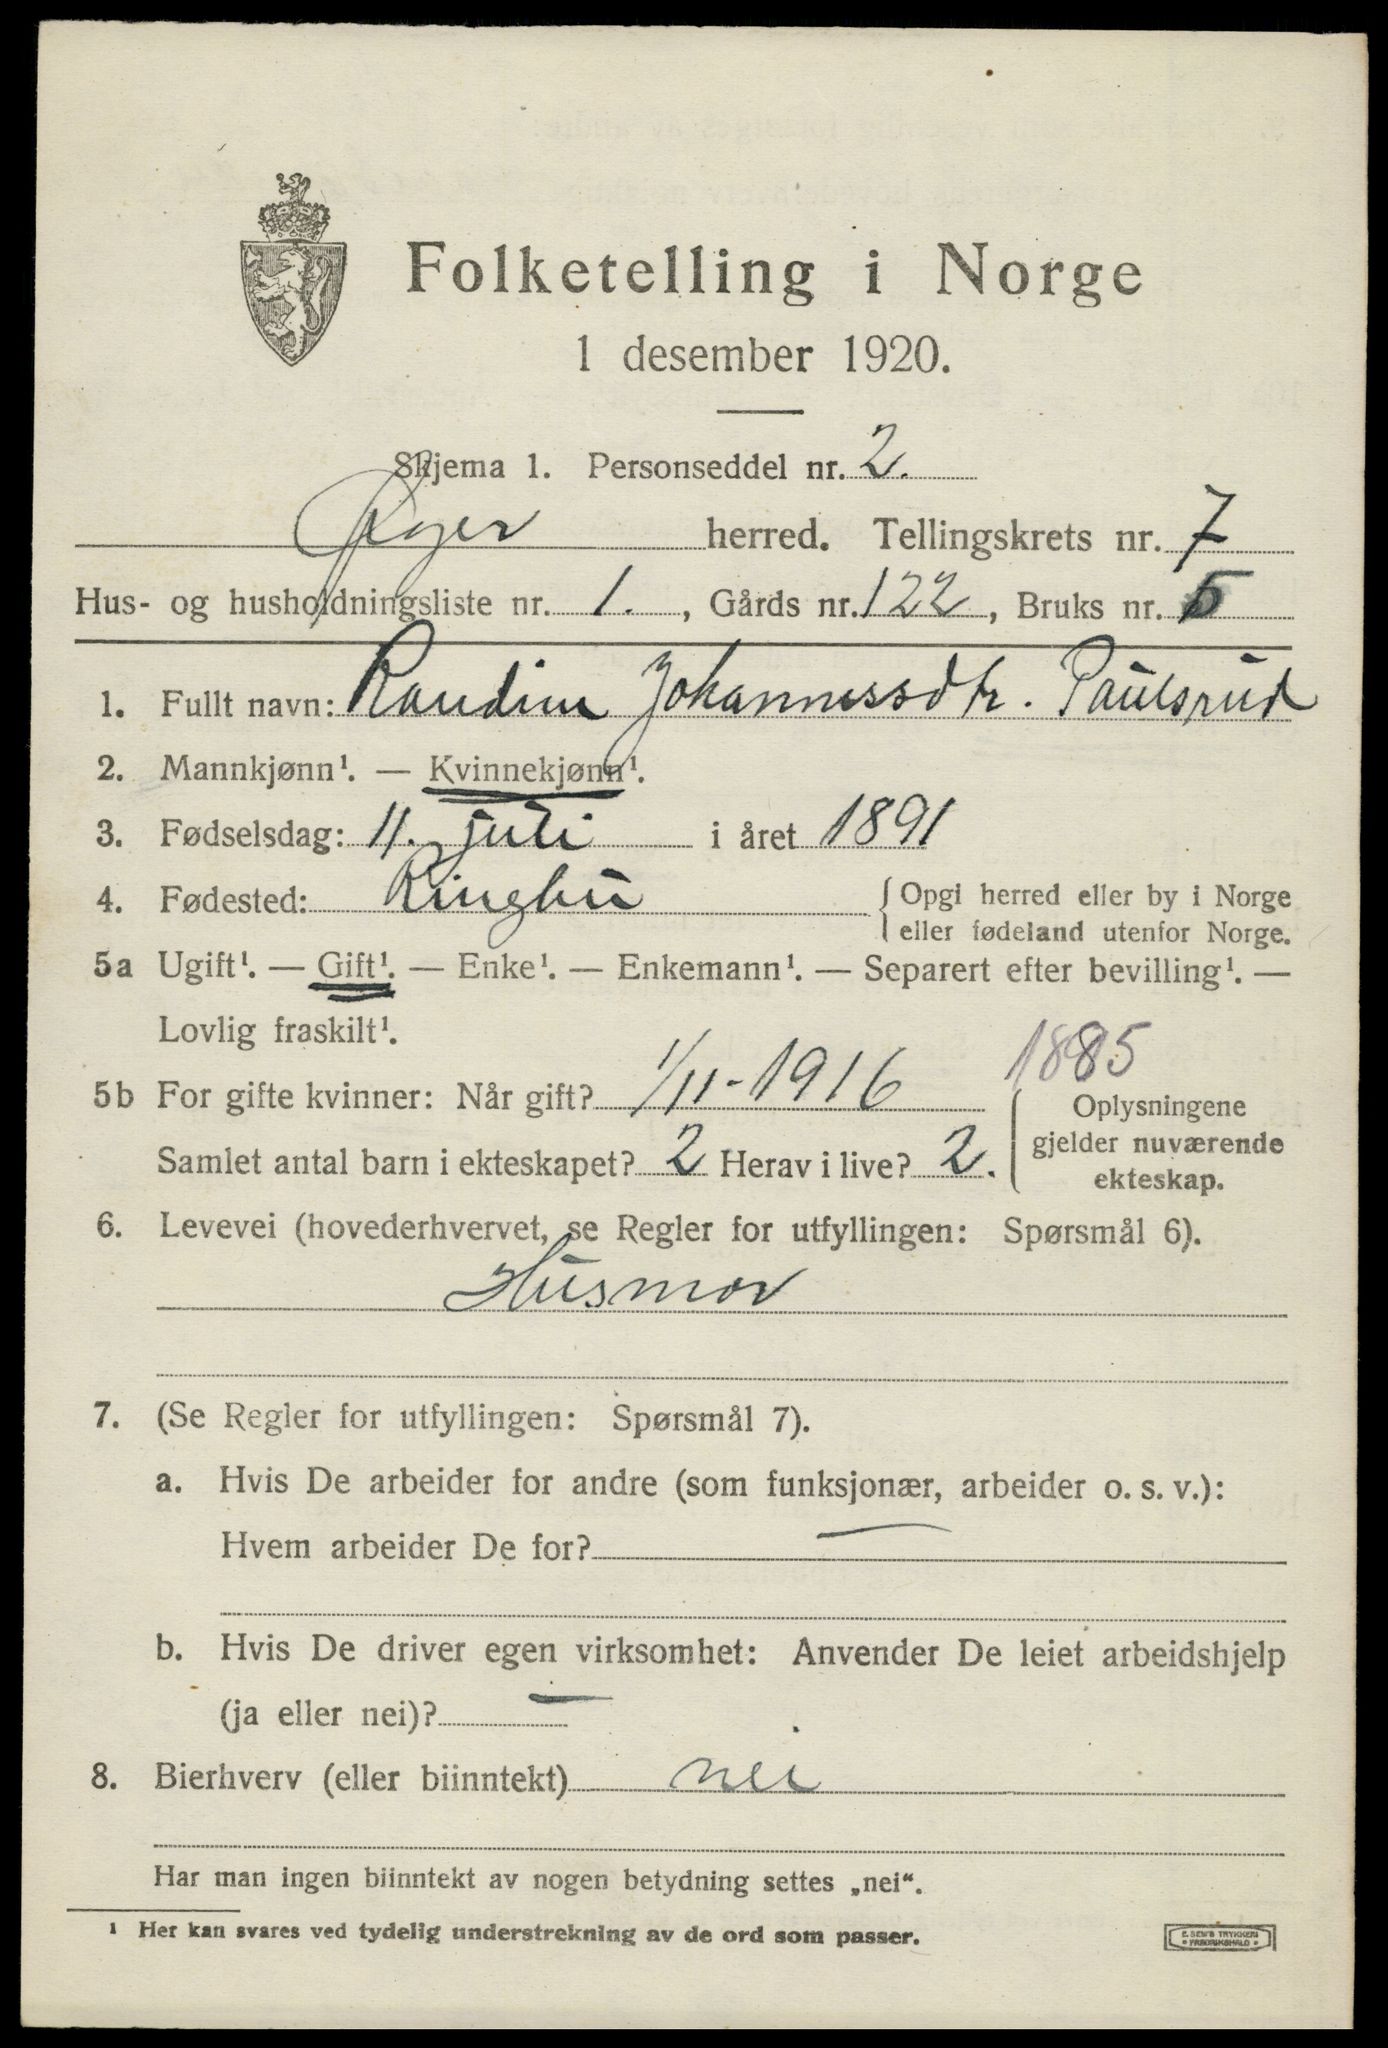 Folketelling i Norge
1 desember 1920.
Skjema 1. Personseddel nr. 2.
Øyer herred. Tellingskrets nr. 7
Hus- og husholdningsliste nr. 1., Gårds nr. 122, Bruks nr. 5
1. Fullt navn: Randine Johannessdtr. Paulsrud
2. Mannkjønn¹. — Kvinnekjønn¹.
3. Fødselsdag: 11. juli i året 1891
4. Fødested: Ringbu { Opgi herred eller by i Norge
eller fødeland utenfor Norge.
5a Ugift¹. — Gift¹. — Enke¹. — Enkemann¹. — Separert efter bevilling¹. —
Lovlig fraskilt¹.
1885
5b For gifte kvinner: Når gift? 1/11-1916
Samlet antal barn i ekteskapet? 2 Herav i live? 2.
Oplysningene
gjelder nuværende
ekteskap.
6. Levevei (hovederhvervet, se Regler for utfyllingen: Spørsmål 6).
Husmor
7. (Se Regler for utfyllingen: Spørsmål 7).
a. Hvis De arbeider for andre (som funksjonær, arbeider o. s. v.):
Hvem arbeider De for? —
b. Hvis De driver egen virksomhet: Anvender De leiet arbeidshjelp
(ja eller nei)? —
8. Bierhverv (eller biinntekt) nei
Har man ingen biinntekt av nogen betydning settes „nei“.
¹ Her kan svares ved tydelig understrekning av de ord som passer.
E. SEM'S TRYKKERI
• FREDRIKSHALD •